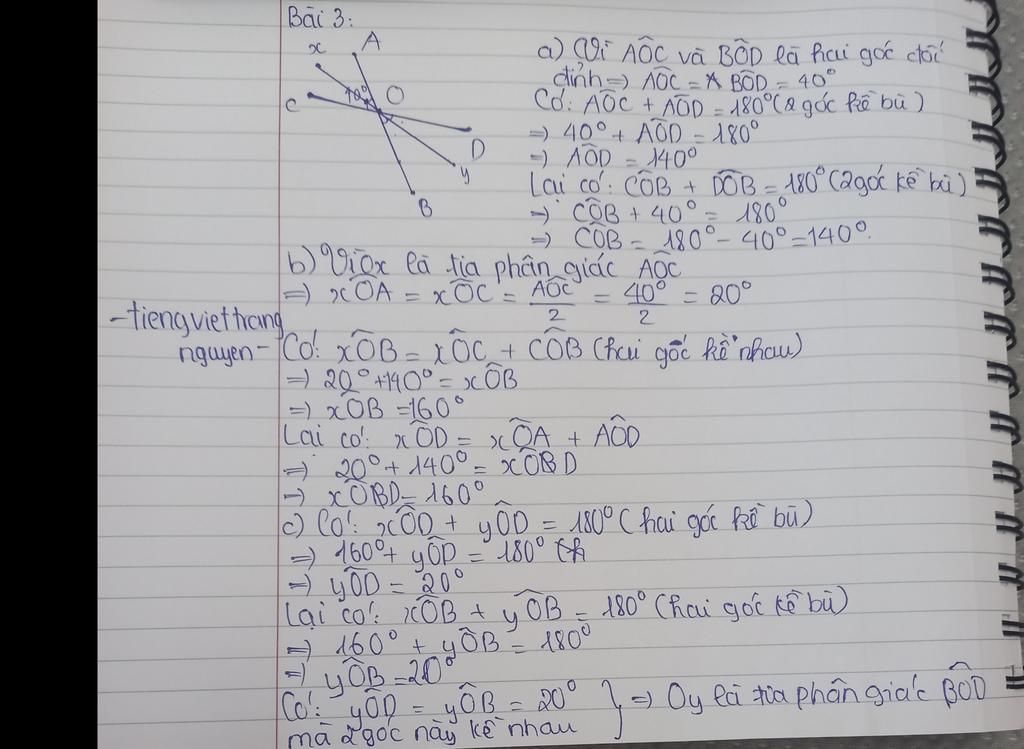 Bài 3:
x A
C 40° O
D
y
B
a) Vì AÔC và BÔD là hai góc đối
đỉnh => AÔC = BÔD = 40°
Có: AÔC + AÔD = 180° (2 góc kề bù)
=> 40° + AÔD = 180°
=> AÔD = 140°
Lại có: CÔB + DÔB = 180° (2 góc kề bù)
=> CÔB + 40° = 180°
=> CÔB = 180° - 40° = 140°.
b) Vì Ox là tia phân giác AÔC
=> xÔA = xÔC = AÔC/2 = 40°/2 = 20°
-tiengviettrang
nguyen-
Có: xÔB = xÔC + CÔB (hai góc kề nhau)
=> 20° + 140° = xÔB
=> xÔB = 160°
Lại có: xÔD = xÔA + AÔD
=> 20° + 140° = xÔBD
=> xÔBD = 160°
c) Có: xÔD + yÔD = 180° (hai góc kề bù)
=> 160° + yÔD = 180° (h
=> yÔD = 20°
Lại có: xÔB + yÔB = 180° (hai góc kề bù)
=> 160° + yÔB = 180°
=> yÔB = 20°
Có: yÔD = yÔB = 20° } => Oy là tia phân giác BÔD
mà 2 góc này kề nhau